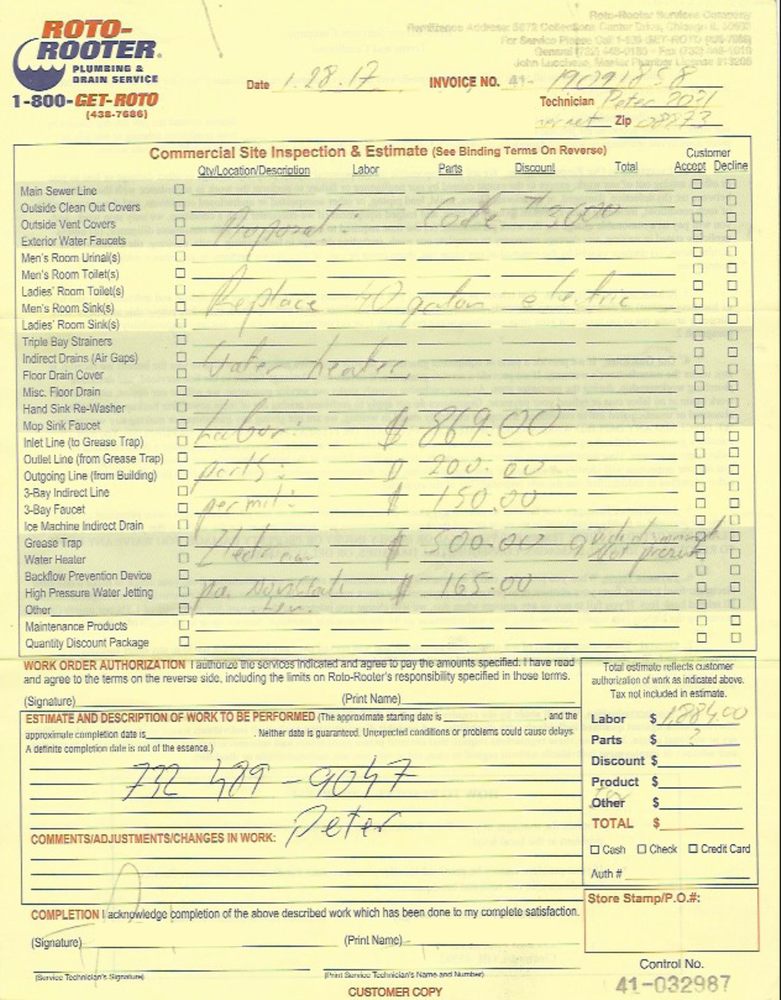 ROTO-ROOTER
PLUMBING &
DRAIN SERVICE
1-800-GET-ROTO
(438-7686)
Roto-Rooter Services Company
Remittance Address: 5672 Collections Center Drive, Chicago, IL
For Service Please Call
Date 1.28.17 INVOICE NO. 41-
Technician Peter
Zip
Commercial Site Inspection & Estimate (See Binding Terms On Reverse)
Customer
Qty/Location/Description Labor Parts Discount Total Accept Decline
Main Sewer Line
Outside Clean Out Covers
Proposal: Code #3000
Outside Vent Covers
Exterior Water Faucets
Men's Room Urinal(s)
Men's Room Toilet(s)
Ladies' Room Toilet(s)
Replace 40 galon electric
Men's Room Sink(s)
Ladies' Room Sink(s)
Triple Bay Strainers
Indirect Drains (Air Gaps)
water heater
Floor Drain Cover
Misc. Floor Drain
Hand Sink Re-Washer
Mop Sink Faucet
Labor: $ 869.00
Inlet Line (to Grease Trap)
Outlet Line (from Grease Trap)
parts: $ 200.00
Outgoing Line (from Building)
3-Bay Indirect Line
permit: $ 150.00
3-Bay Faucet
Ice Machine Indirect Drain
Grease Trap
Electrician $ 500.00
Water Heater
Backflow Prevention Device
$ 165.00
High Pressure Water Jetting
Other
Maintenance Products
Quantity Discount Package
WORK ORDER AUTHORIZATION I authorize the services indicated and agree to pay the amounts specified. I have read
and agree to the terms on the reverse side, including the limits on Roto-Rooter's responsibility specified in those terms.
(Signature) (Print Name)
ESTIMATE AND DESCRIPTION OF WORK TO BE PERFORMED (The approximate starting date is , and the
approximate completion date is . Neither date is guaranteed. Unexpected conditions or problems could cause delays.
A definite completion date is not of the essence.)
732 489-9047
Peter
COMMENTS/ADJUSTMENTS/CHANGES IN WORK:
COMPLETION I acknowledge completion of the above described work which has been done to my complete satisfaction.
(Signature) (Print Name)
(Service Technician's Signature) (Print Service Technician's Name and Number)
CUSTOMER COPY
Total estimate reflects customer
authorization of work as indicated above.
Tax not included in estimate.
Labor $ 1,884.00
Parts $ ?
Discount $
Product $
Other $
TOTAL $
Cash Check Credit Card
Auth #
Store Stamp/P.O.#:
Control No.
41-032987